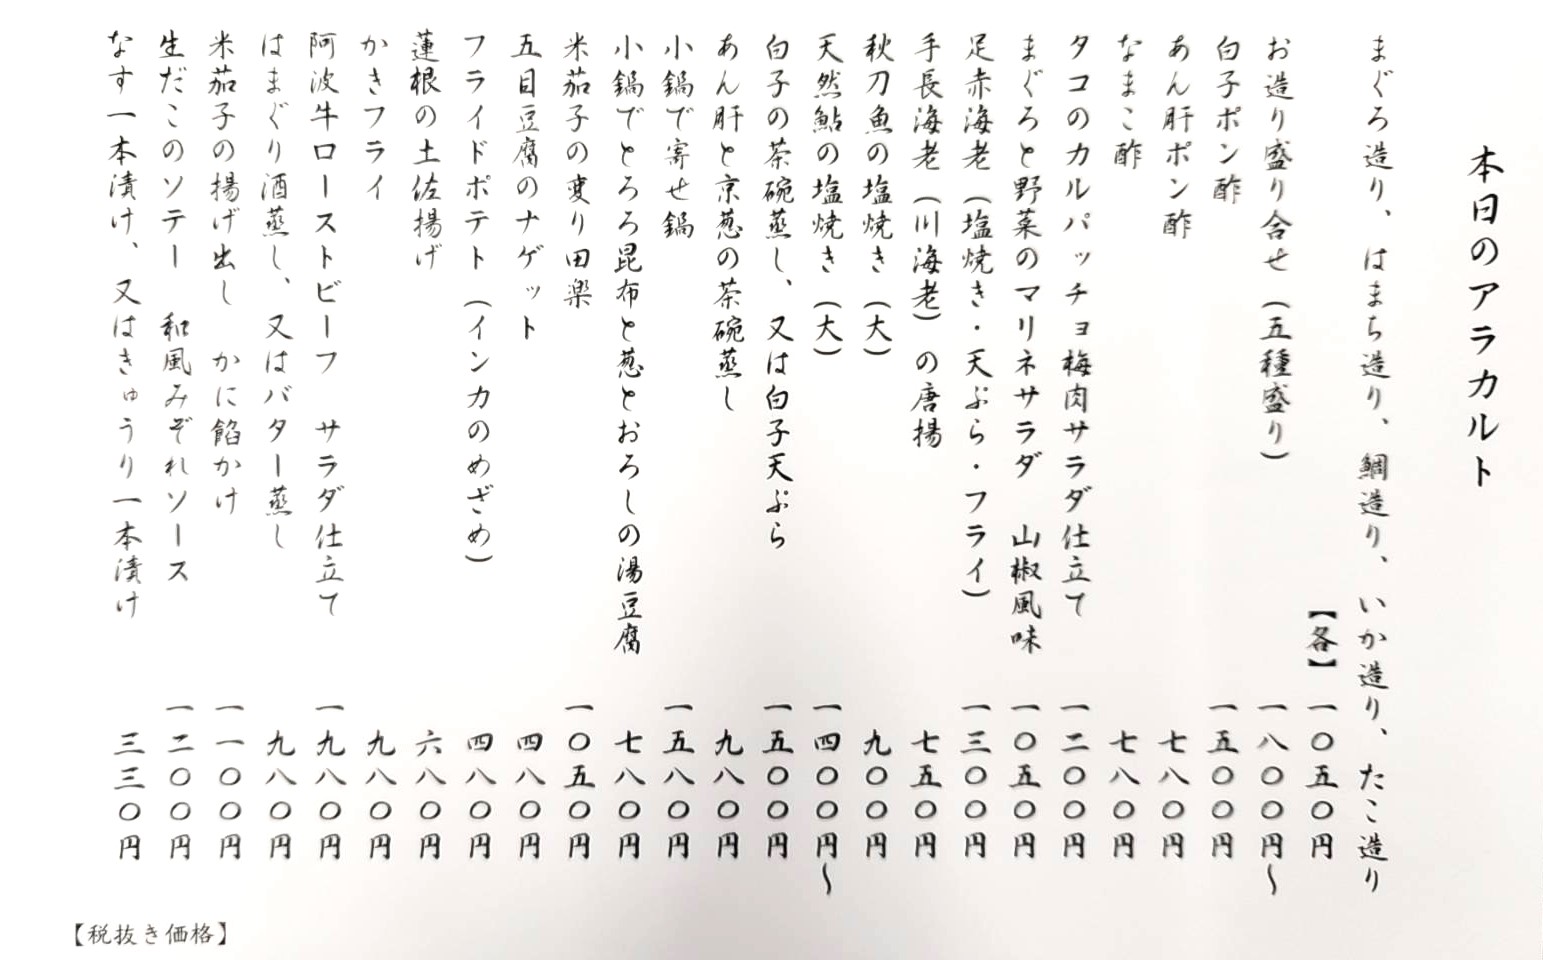 本日のアラカルト
まぐろ造り、はまち造り、鯛造り、いか造り、たこ造り
【各】一〇五〇円
お造り盛り合せ（五種盛り）一八〇〇円〜
白子ポン酢 一五〇〇円
あん肝ポン酢 七八〇円
なまこ酢 七八〇円
タコのカルパッチョ梅肉サラダ仕立て 一二〇〇円
まぐろと野菜のマリネサラダ 山椒風味 一〇五〇円
足赤海老（塩焼き・天ぷら・フライ）一三〇〇円
手長海老（川海老）の唐揚 七五〇円
秋刀魚の塩焼き（大）九〇〇円
天然鮎の塩焼き（大）一四〇〇円〜
白子の茶碗蒸し、又は白子天ぷら 一五〇〇円
あん肝と京葱の茶碗蒸し 九八〇円
小鍋で寄せ鍋 一五八〇円
小鍋でとろろ昆布と葱とおろしの湯豆腐 七八〇円
米茄子の変り田楽 一〇五〇円
五目豆腐のナゲット 四八〇円
フライドポテト（インカのめざめ）四八〇円
蓮根の土佐揚げ 六八〇円
かきフライ 九八〇円
阿波牛ローストビーフ サラダ仕立て 一九八〇円
はまぐり酒蒸し、又はバター蒸し 九八〇円
米茄子の揚げ出し かに餡かけ 一一〇〇円
生だこのソテー 和風みぞれソース 一二〇〇円
なす一本漬け、又はきゅうり一本漬け 三三〇円
【税抜き価格】